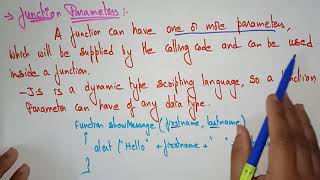 Function Parameters :-
A function can have one or more parameters,
which will be supplied by the calling code and can be used
inside a function.
- JS is a dynamic type scripting language, so a function
Parameter can have of any data type.
Function showMessage (firstname, lastname)
{
alert ("Hello" + firstname + "
}